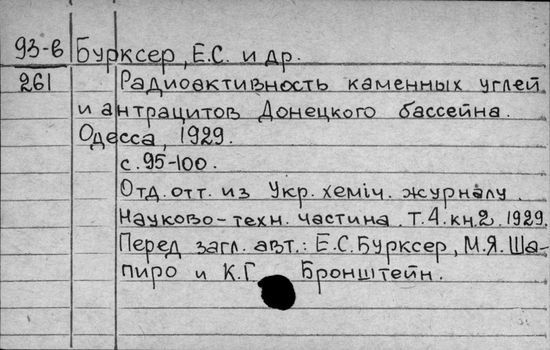 93-в Бурксер, Е.С. и др.
261 Радиоактивность каменных углей
и антрацитов Донецкого бассейна.
Одесса, 1929.
с. 95-100.
Отд. отт. из Укр. хемiч. журналу.
Науково-техн. частина. Т.4. кн.2. 1929.
Перед загл. авт.: Е.С. Бурксер, М.Я. Ша-
пиро и К.Г. Бронштейн.